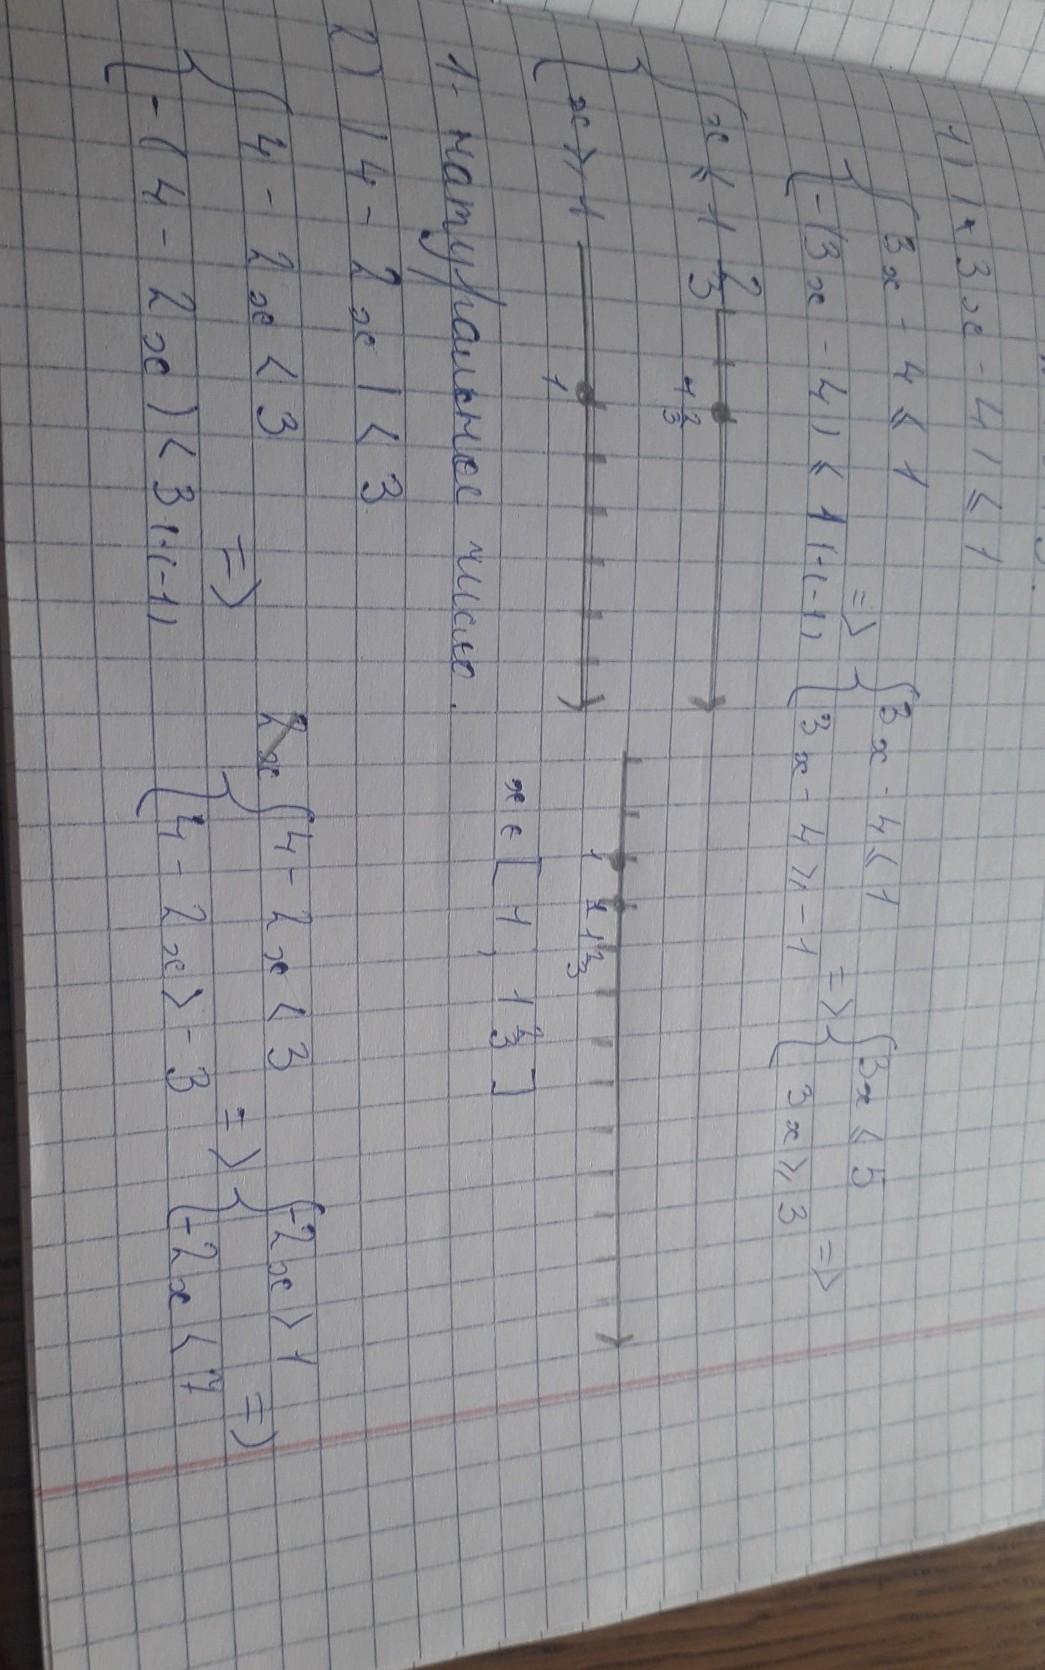 1) |3x - 4| ⩽ 1
{ 3x - 4 ⩽ 1
{ -(3x - 4) ⩽ 1 |·(-1) => { 3x - 4 ⩽ 1
{ 3x - 4 ⩾ -1 => { 3x ⩽ 5
{ 3x ⩾ 3 =>
{ x ⩽ 1 2/3
1 2/3
{ x ⩾ 1
1
1 1 2/3
x ∈ [1, 1 2/3]
1 - натуральное число.
2) |4 - 2x| < 3
{ 4 - 2x < 3
{ -(4 - 2x) < 3 |·(-1) => { 4 - 2x < 3
{ 4 - 2x > -3 => { -2x > 1
{ -2x < 7 =>